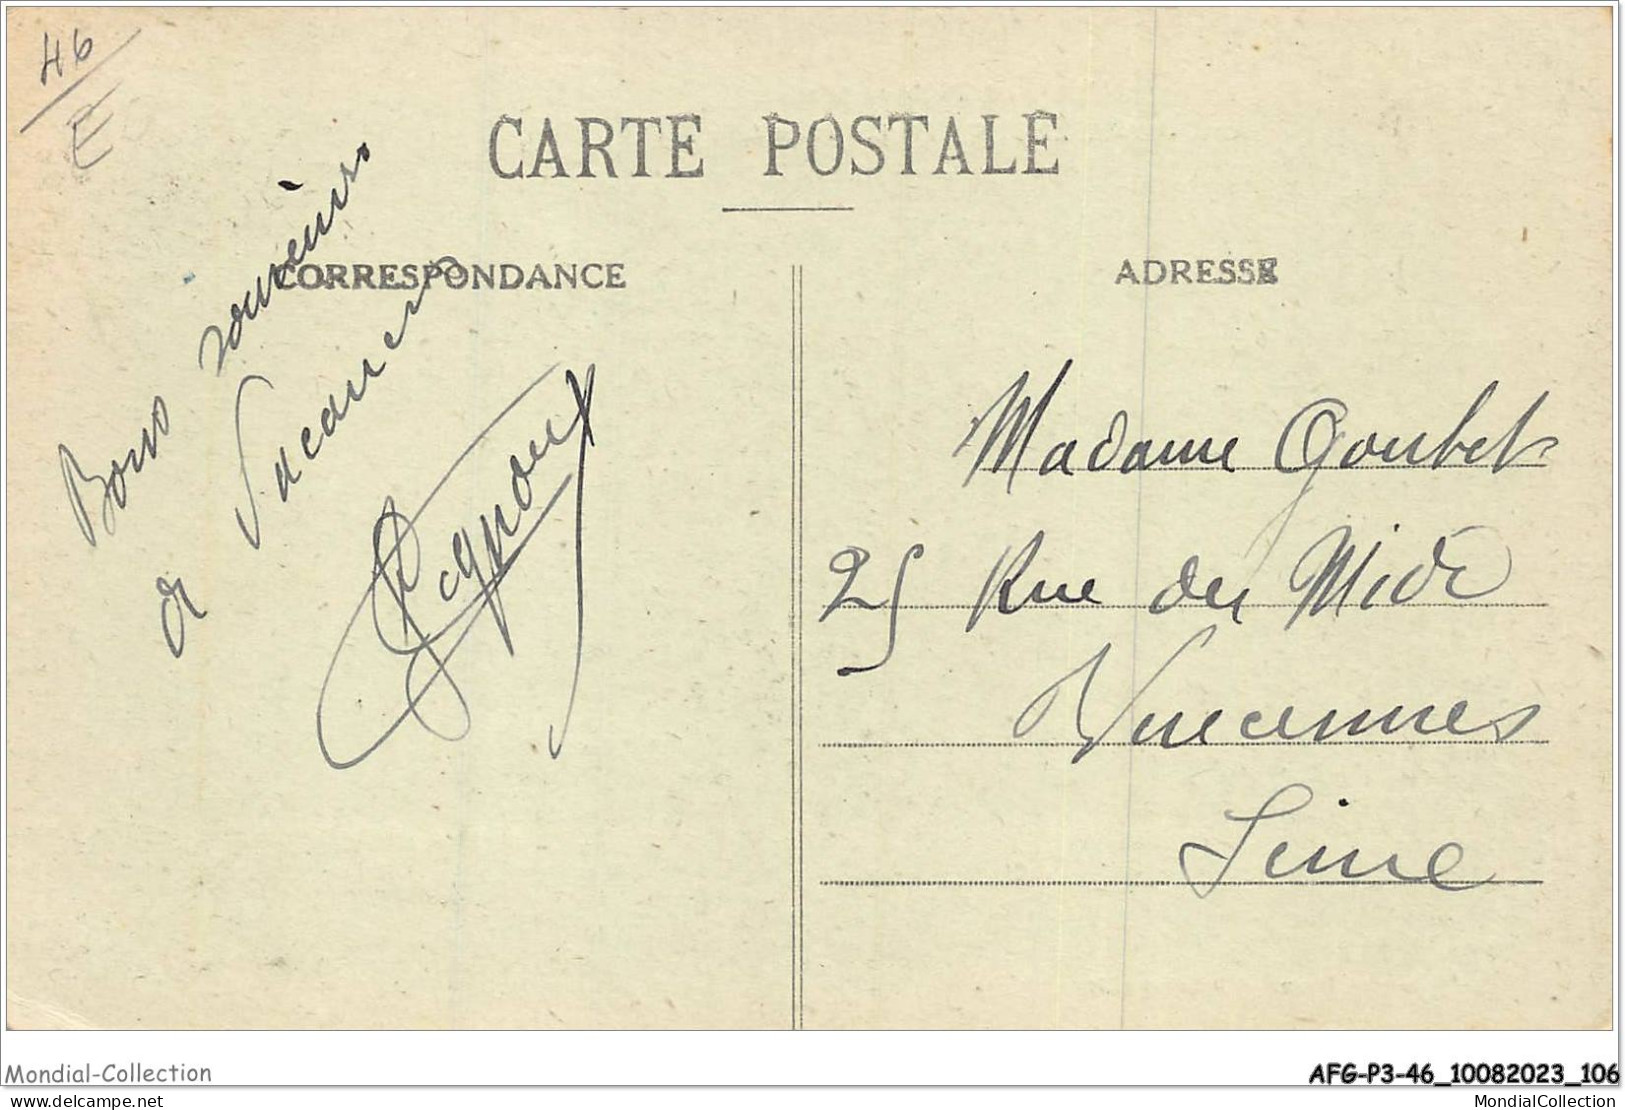 46
E
CARTE POSTALE
CORRESPONDANCE
ADRESSE
Bons souvenirs
de
Madame Goubet
25 Rue du Midi
Vincennes
Seine
Mondial-Collection
AFG-P3-46_10082023_106
delcampe.net
MondialCollection